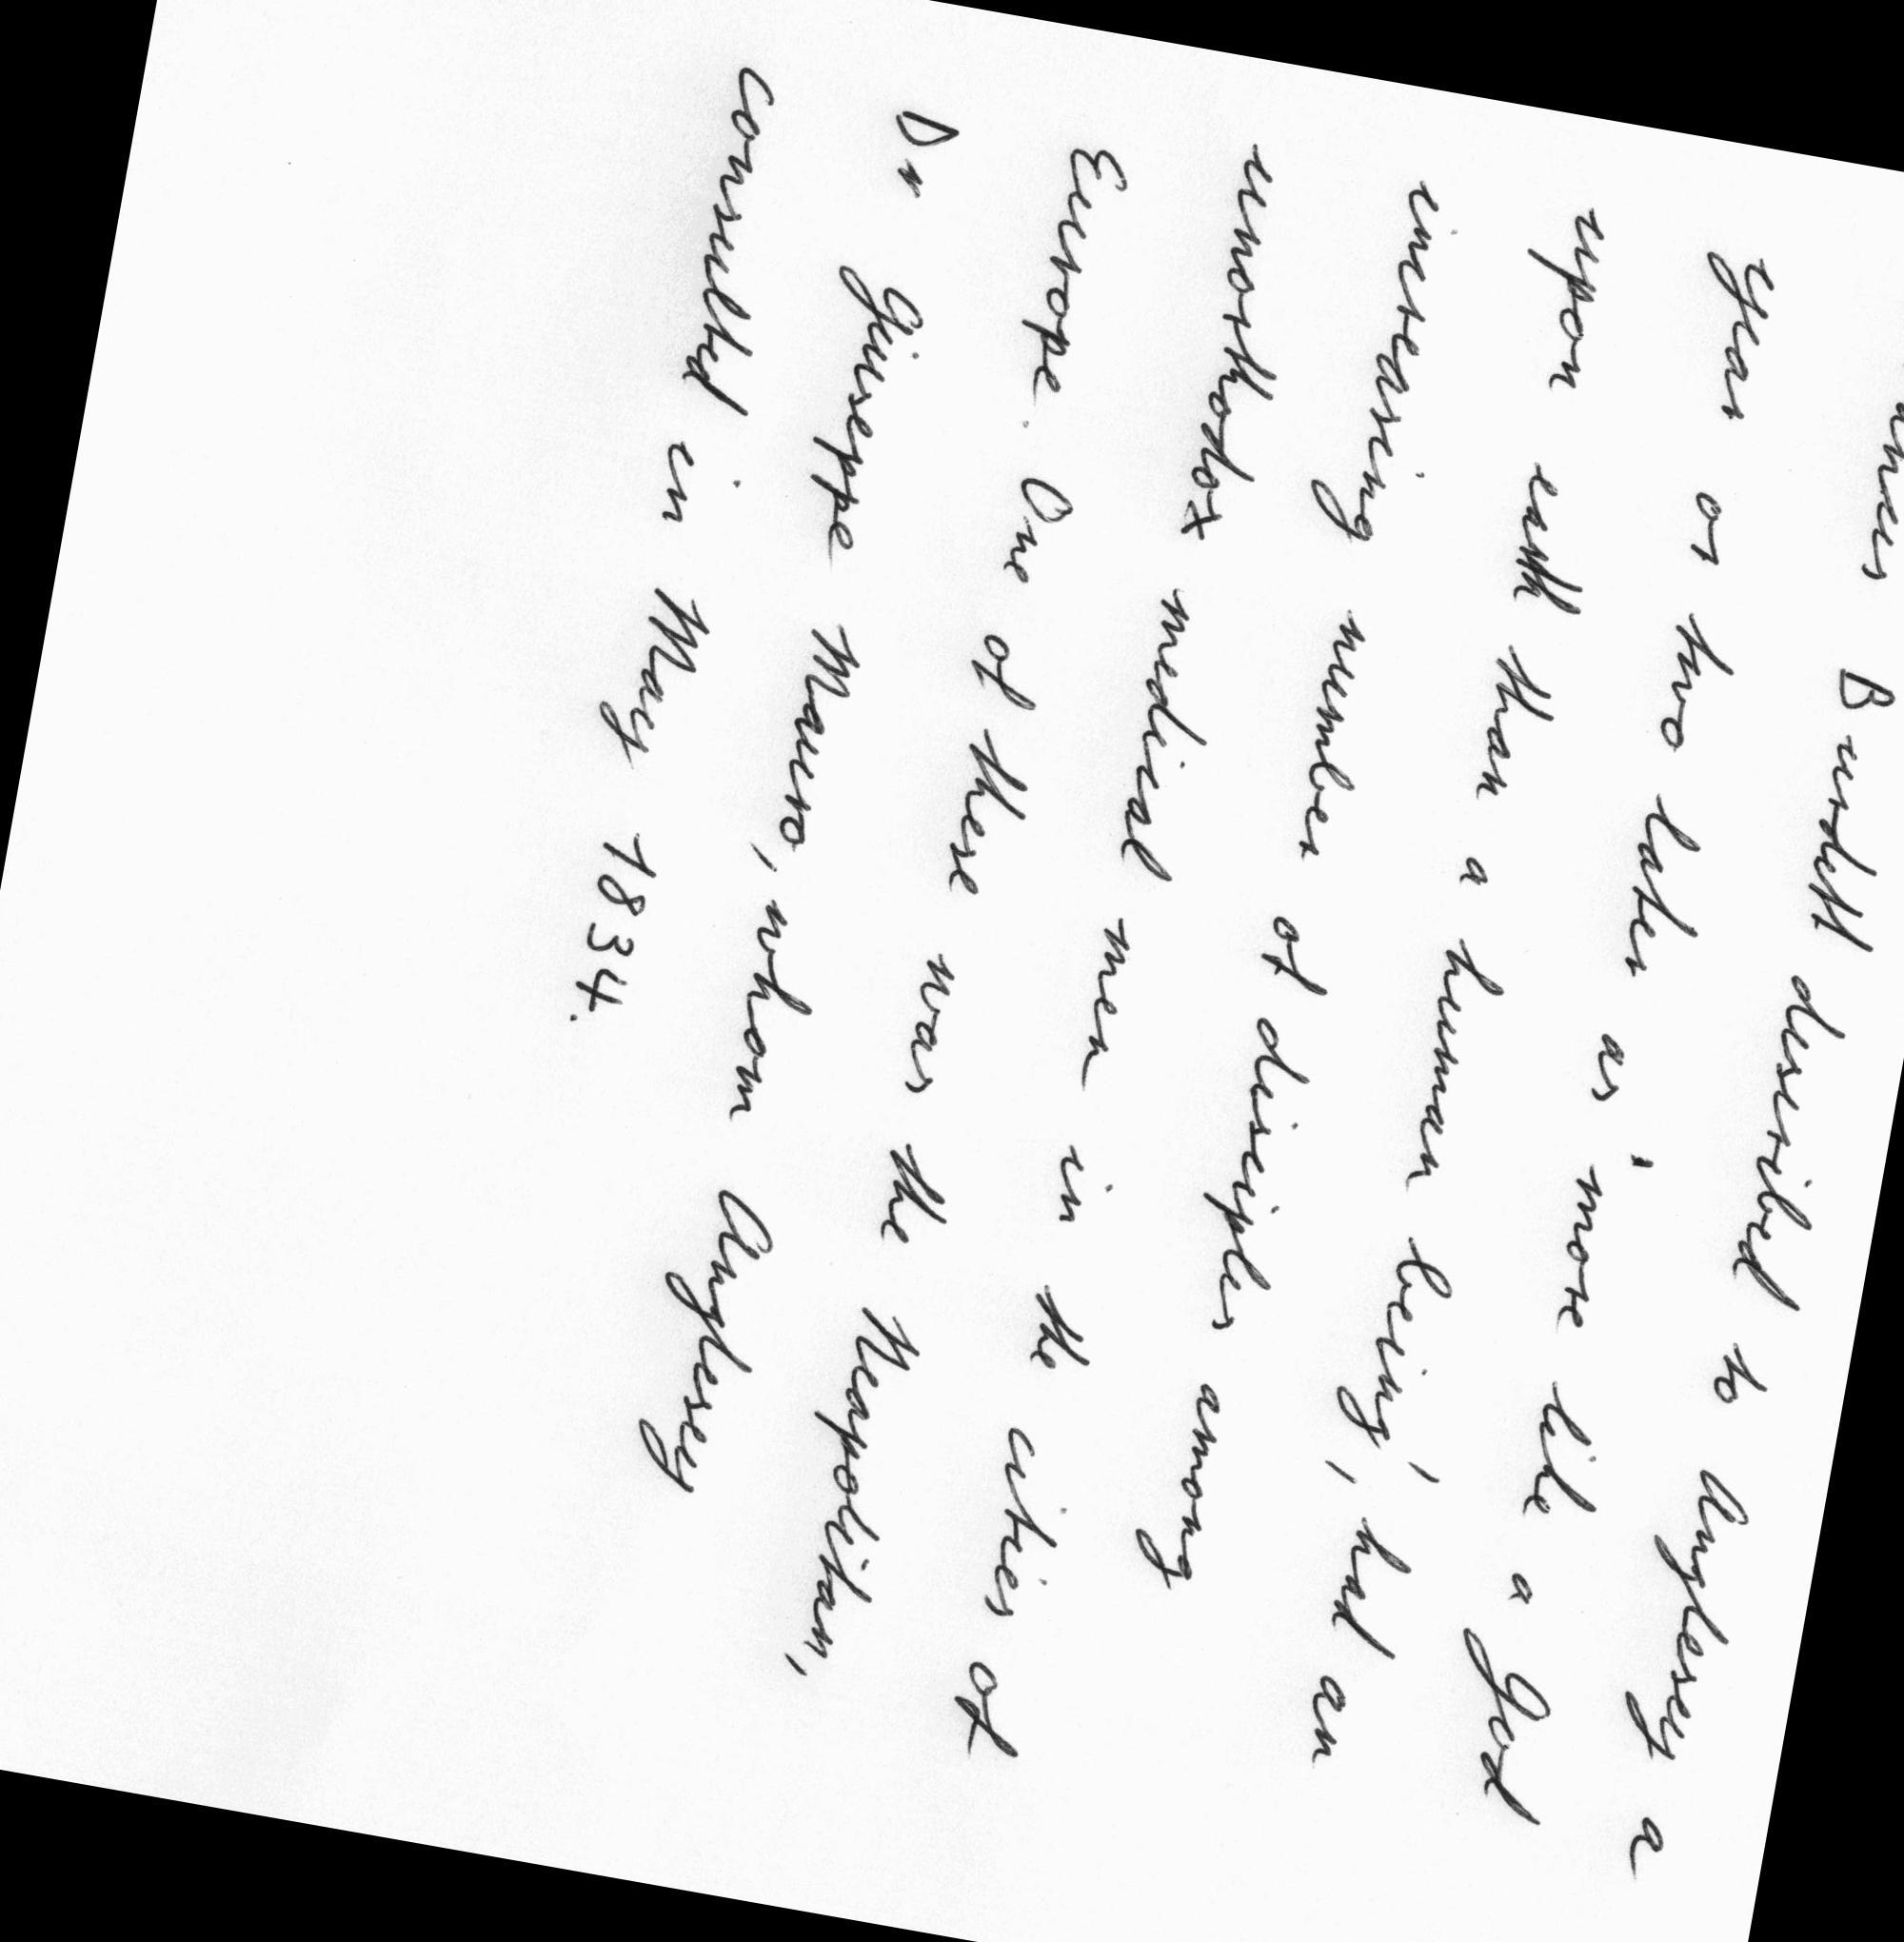 Burdett described to Anglesey a
year or two later as 'more like a God
upon earth than a human being', had an
increasing number of disciples among
unorthodox medical men in the cities of
Europe. One of these was the Neapolitan,
Dr Giuseppe Mauro, whom Anglesey
consulted in May 1834.